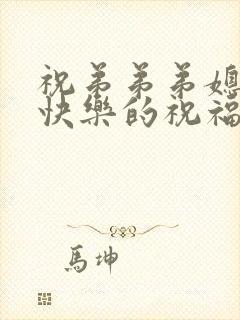 祝弟弟弟媳
快樂的祝福
馬坤